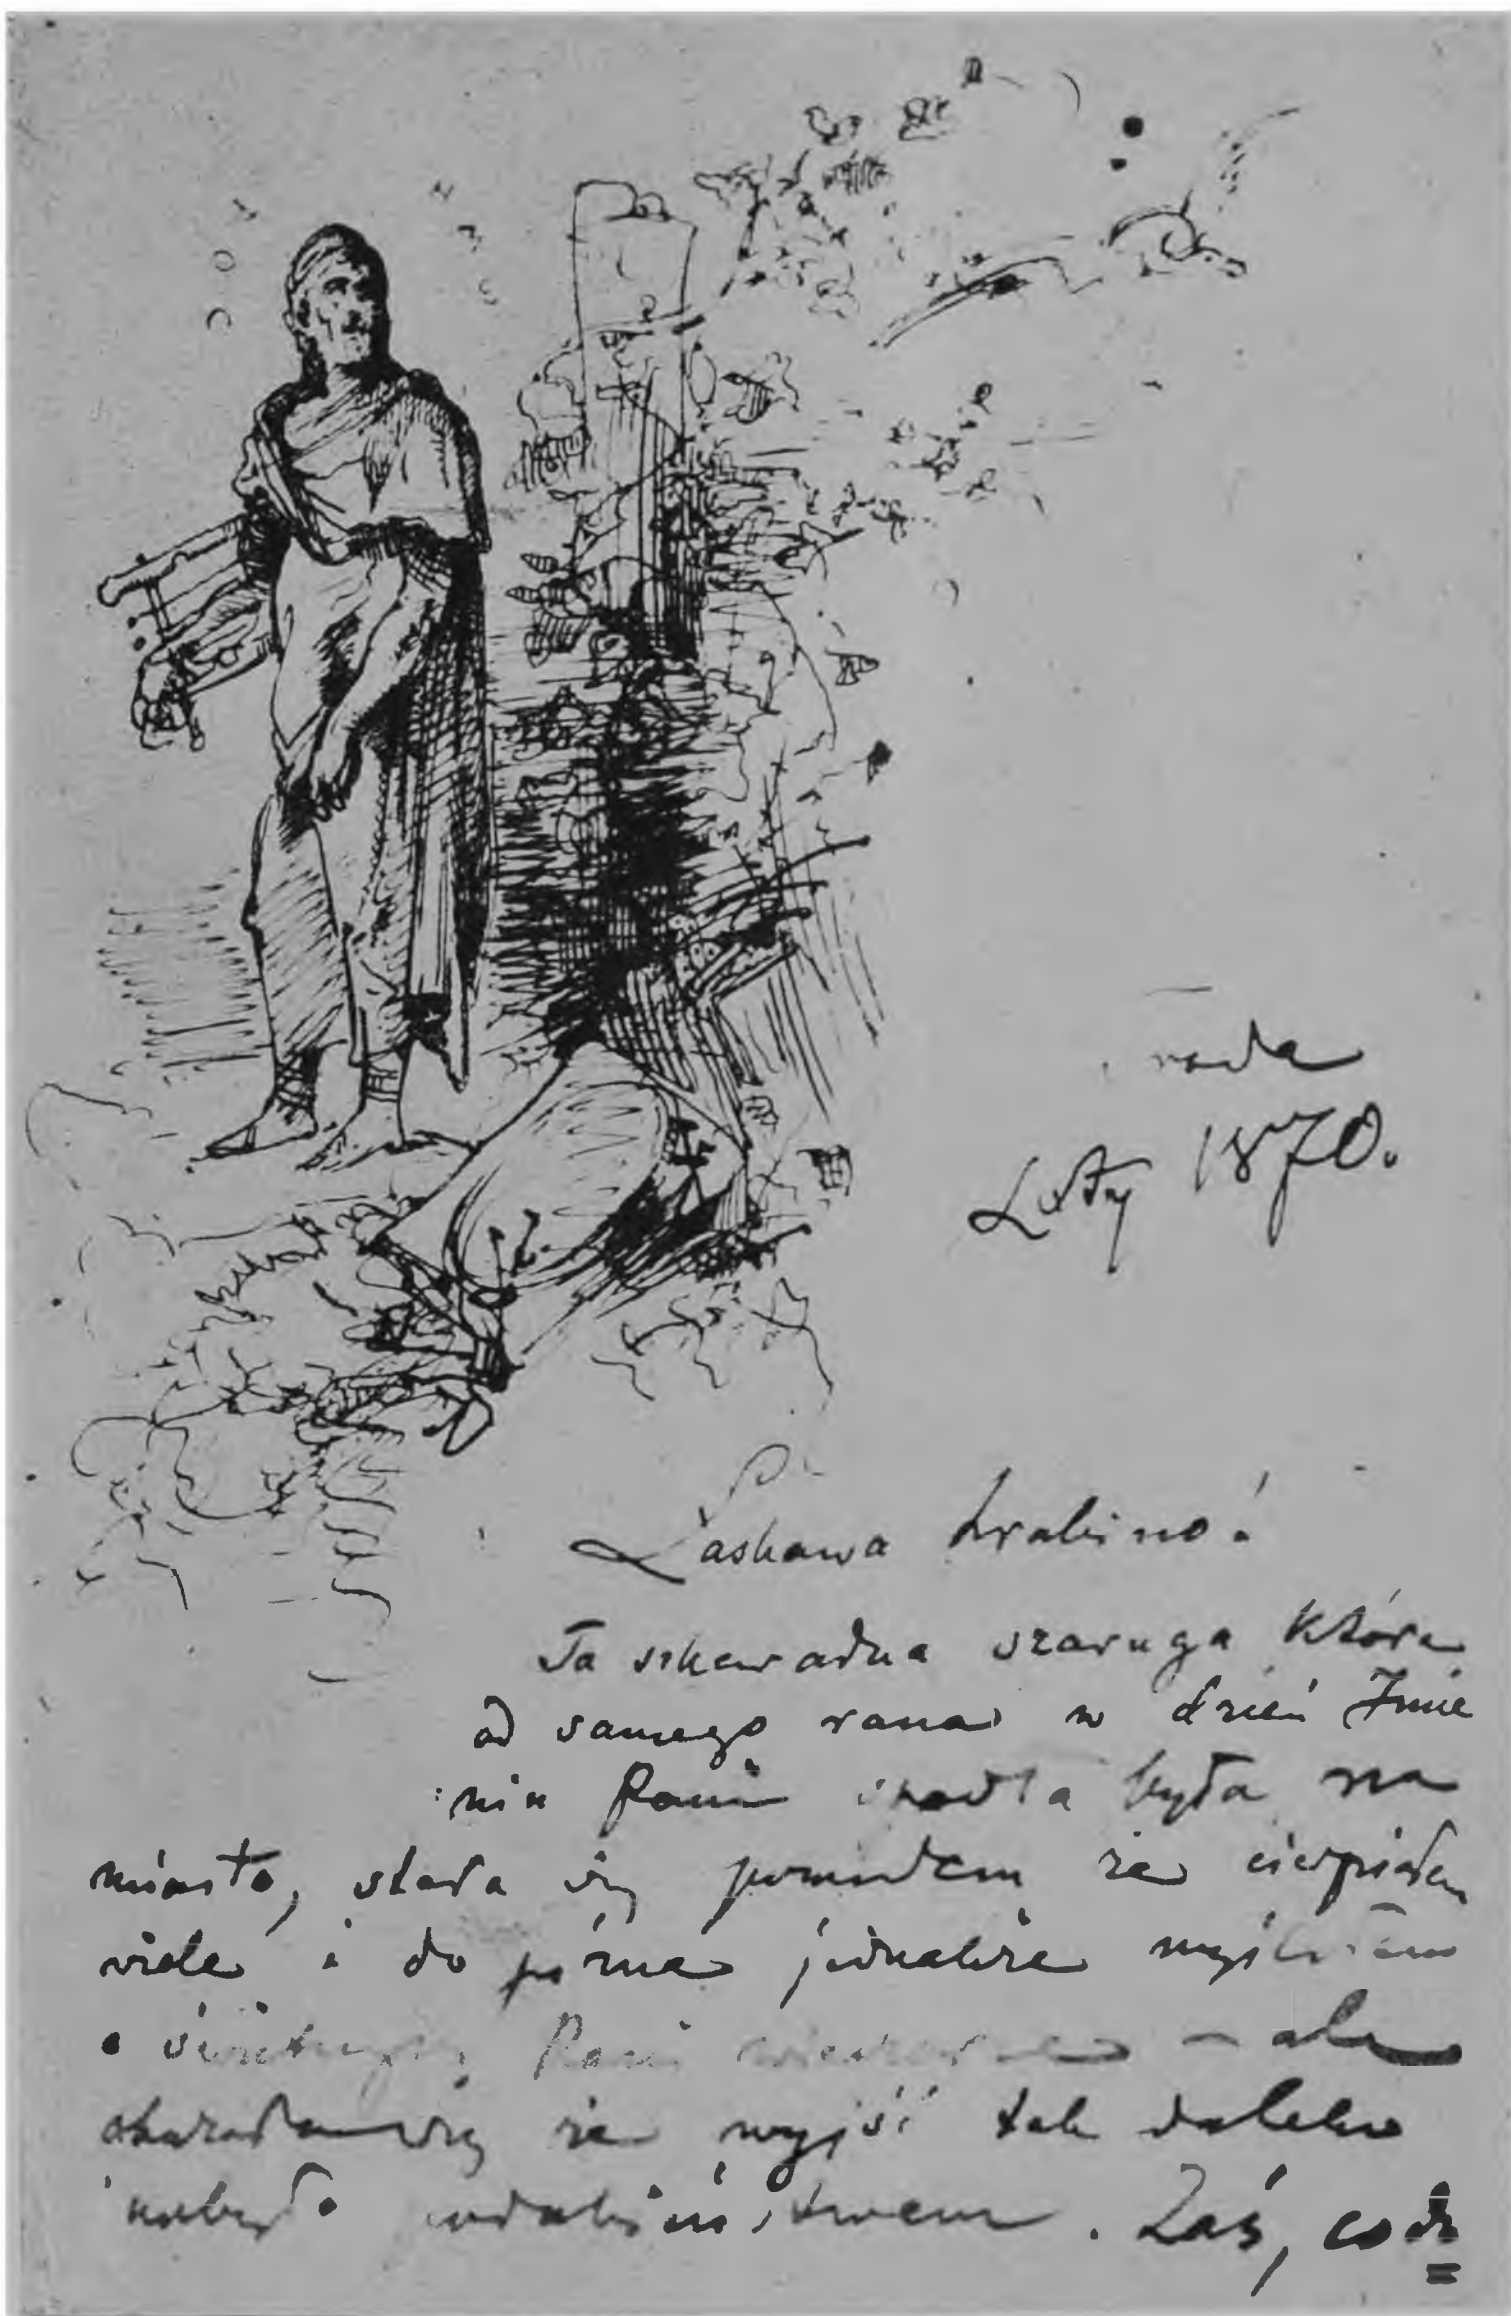 Luty 1870.
Łaskawa hrabino!
Ta szkaradna szaruga która
od samego rana w dzień Imie
nin Pani spadła była na
miasto, stała się powodem że cierpiałem
wiele i do późna jednakże myśliłem
Pani – ale
okazało się że wyjść tak daleko
niebyło podobieństwem. Zaś, co do